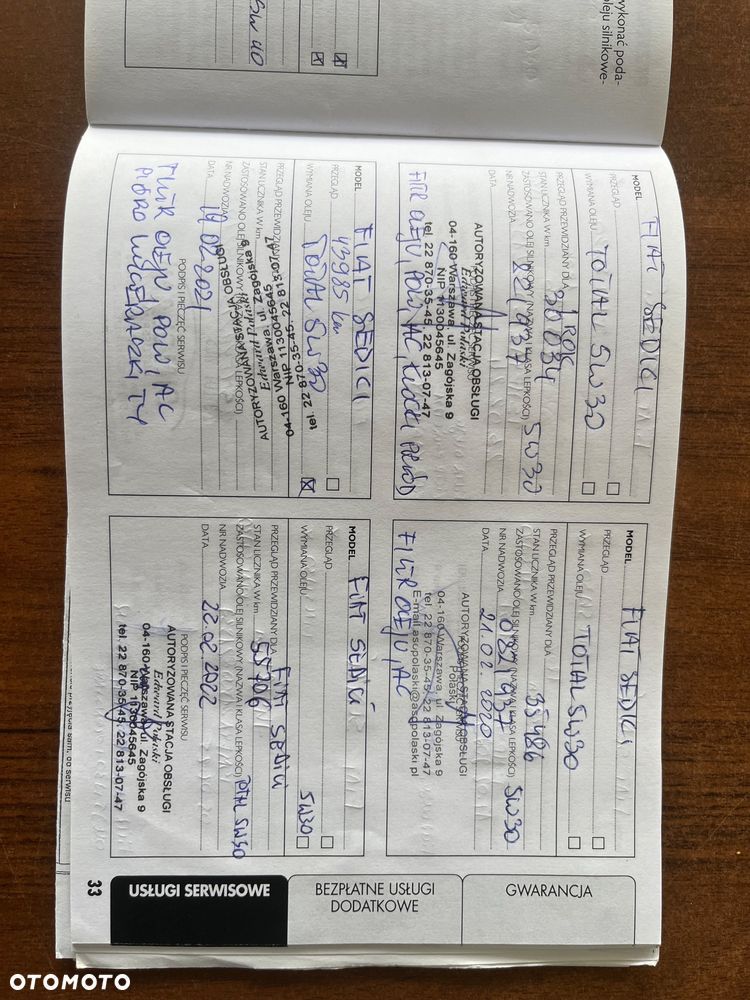 wykonać poda-
oleju silnikowe-
5W40
MODEL FIAT SEDICI
PRZEGLĄD
WYMIANA OLEJU TOTAL 5W30
PRZEGLĄD PRZEWIDZIANY DLA 1 ROK
STAN LICZNIKA W km 30 034
ZASTOSOWANO OLEJ SILNIKOWY (NAZWA I KLASA LEPKOŚCI) 5W30
NR NADWOZIA 221937
DATA
AUTORYZOWANA STACJA OBSŁUGI
Edward Polaski
04-160 Warszawa, ul. Zagójska 9
NIP 1130045645
tel. 22 870-35-45, 22 813-07-47
FILTR OLEJU, POW, AC, KLOCKI PRZÓD
MODEL FIAT SEDICI
PRZEGLĄD
WYMIANA OLEJU TOTAL 5W30
PRZEGLĄD PRZEWIDZIANY DLA
STAN LICZNIKA W km 35486
ZASTOSOWANO OLEJ SILNIKOWY (NAZWA I KLASA LEPKOŚCI) 5W30
NR NADWOZIA 0221937
DATA 21.02.2020
AUTORYZOWANA STACJA OBSŁUGI
Polaski
04-160 Warszawa, ul. Zagójska 9
tel. 22 870-35-45, 22 813-07-47
E-mail:asopolaski@asopolaski.pl
FILTR OLEJU, AC
MODEL FIAT SEDICI
PRZEGLĄD 43985 km
WYMIANA OLEJU TOTAL 5W30
PRZEGLĄD PRZEWIDZIANY DLA
STAN LICZNIKA W km
ZASTOSOWANO OLEJ SILNIKOWY (NAZWA I KLASA LEPKOŚCI)
NR NADWOZIA
DATA 19.02.2021
AUTORYZOWANA STACJA
OBSŁUGI
Edward Polaski
04-160 Warszawa, ul. Zagójska 9
NIP 1130045645
tel. 22 870-35-45, 22 813-07-47
PODPIS I PIECZĘĆ SERWISU
FILTR OLEJU POW, AC
PIÓRO WYCIERACZKI TY
MODEL FIAT SEDICI
PRZEGLĄD
WYMIANA OLEJU 5W30
PRZEGLĄD PRZEWIDZIANY DLA FIAT SEDICI
STAN LICZNIKA W km 55706
ZASTOSOWANO OLEJ SILNIKOWY (NAZWA I KLASA LEPKOŚCI) TOTAL 5W30
NR NADWOZIA
DATA 22.02.2022
PODPIS I PIECZĘĆ SERWISU
AUTORYZOWANA STACJA OBSŁUGI
Edward Polaski
04-160 Warszawa, ul. Zagójska 9
NIP 1130045645
tel. 22 870-35-45, 22 813-07-47
GWARANCJA
BEZPŁATNE USŁUGI
DODATKOWE
USŁUGI SERWISOWE
33
OTOMOTO